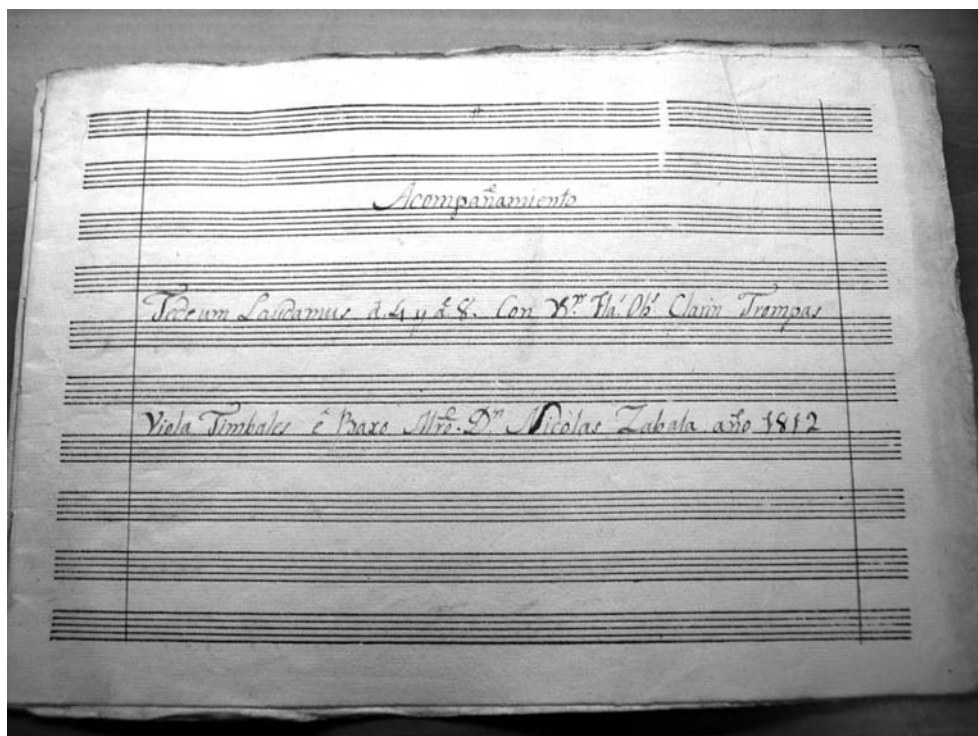 Acompañamiento
Tedeum Laudamus á. 4 y á. 8. Con Vs. Fla. Obs. Clarin Trompas
Viola Timbales é Baxo Mro. Dn. Nicòlas Zabala año 1812